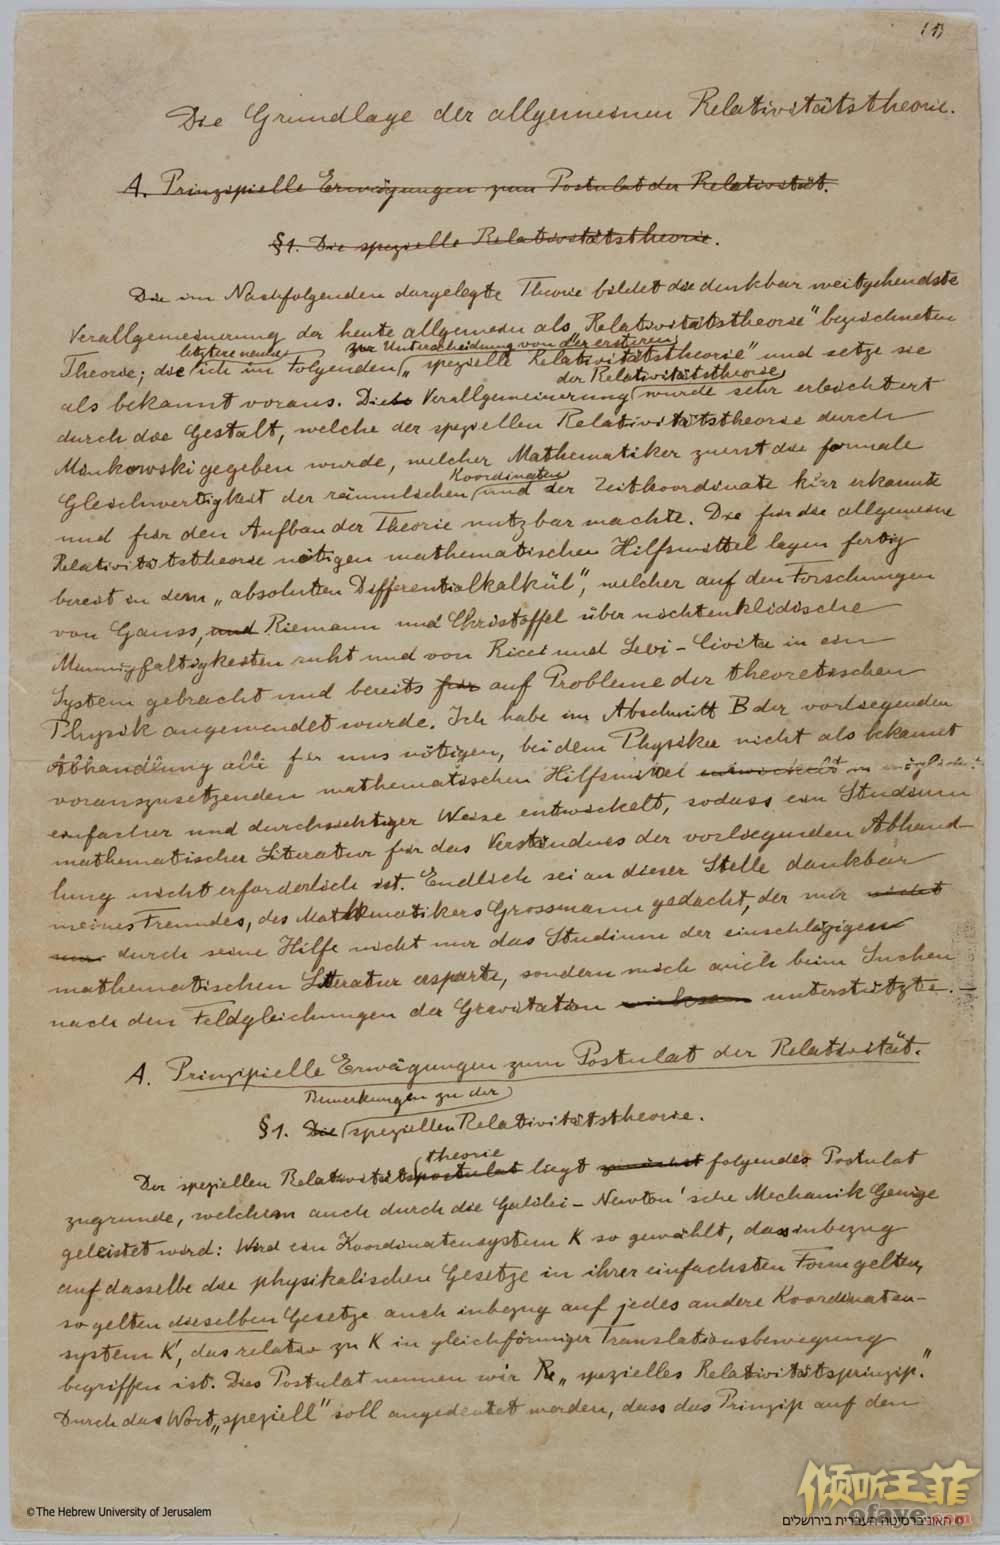 (1)
Die Grundlage der allgemeinen Relativitätstheorie.
A. Prinzipielle Erwägungen zum Postulat der Relativität.
§1. Die spezielle Relativitätstheorie.
Die im Nachfolgenden dargelegte Theorie bildet die denkbar weitgehendste
Verallgemeinerung der heute allgemein als „Relativitätstheorie" bezeichneten
letztere nenne zur Unterscheidung von der ersteren
Theorie; die ich im Folgenden „spezielle Relativitätstheorie" und setze sie
der Relativitätstheorie
als bekannt voraus. Die Verallgemeinerung wurde sehr erleichtert
durch die Gestalt, welche der speziellen Relativitätstheorie durch
Minkowski gegeben wurde, welcher Mathematiker zuerst die formale
Koordinaten
Gleichwertigkeit der räumlichen und der Zeitkoordinate klar erkannte
und für den Aufbau der Theorie nutzbar machte. Die für die allgemeine
Relativitätstheorie nötigen mathematischen Hilfsmittel lagen fertig
bereit in dem „absoluten Differentialkalkül", welcher auf den Forschungen
von Gauss, und Riemann und Christoffel über nichteuklidische
Mannigfaltigkeiten ruht und von Ricci und Levi-Civita in ein
System gebracht und bereits für auf Probleme der theoretischen
Physik angewendet wurde. Ich habe im Abschnitt B der vorliegenden
Abhandlung alle für uns nötigen, bei dem Physiker nicht als bekannt
vorauszusetzenden mathematischen Hilfsmittel entwickelt in möglichst
einfacher und durchsichtiger Weise entwickelt, sodass ein Studium
mathematischer Literatur für das Verständnis der vorliegenden Abhand-
lung nicht erforderlich ist. Endlich sei an dieser Stelle dankbar
meines Freundes, des Mathematikers Grossmann gedacht, der mir nicht
nur durch seine Hilfe nicht nur das Studium der einschlägigen
mathematischen Literatur ersparte, sondern mich auch beim Suchen
nach den Feldgleichungen der Gravitation unterstützte.
A. Prinzipielle Erwägungen zum Postulat der Relativität.
Bemerkungen zu der
§1. Die speziellen Relativitätstheorie.
theorie
Der speziellen Relativitätspostulat liegt zunächst folgendes Postulat
zugrunde, welchem auch durch die Galilei-Newton'sche Mechanik Genüge
geleistet wird: Wird ein Koordinatensystem K so gewählt, dass inbezug
auf dasselbe die physikalischen Gesetze in ihrer einfachsten Form gelten,
so gelten dieselben Gesetze auch inbezug auf jedes andere Koordinaten-
system K', das relativ zu K in gleichförmiger Translationsbewegung
begriffen ist. Dies Postulat nennen wir „spezielles Relativitätsprinzip."
Durch das Wort „speziell" soll angedeutet werden, dass das Prinzip auf den
倾听王菲
ofaye.com
©The Hebrew University of Jerusalem
© האוניברסיטה העברית בירושלים